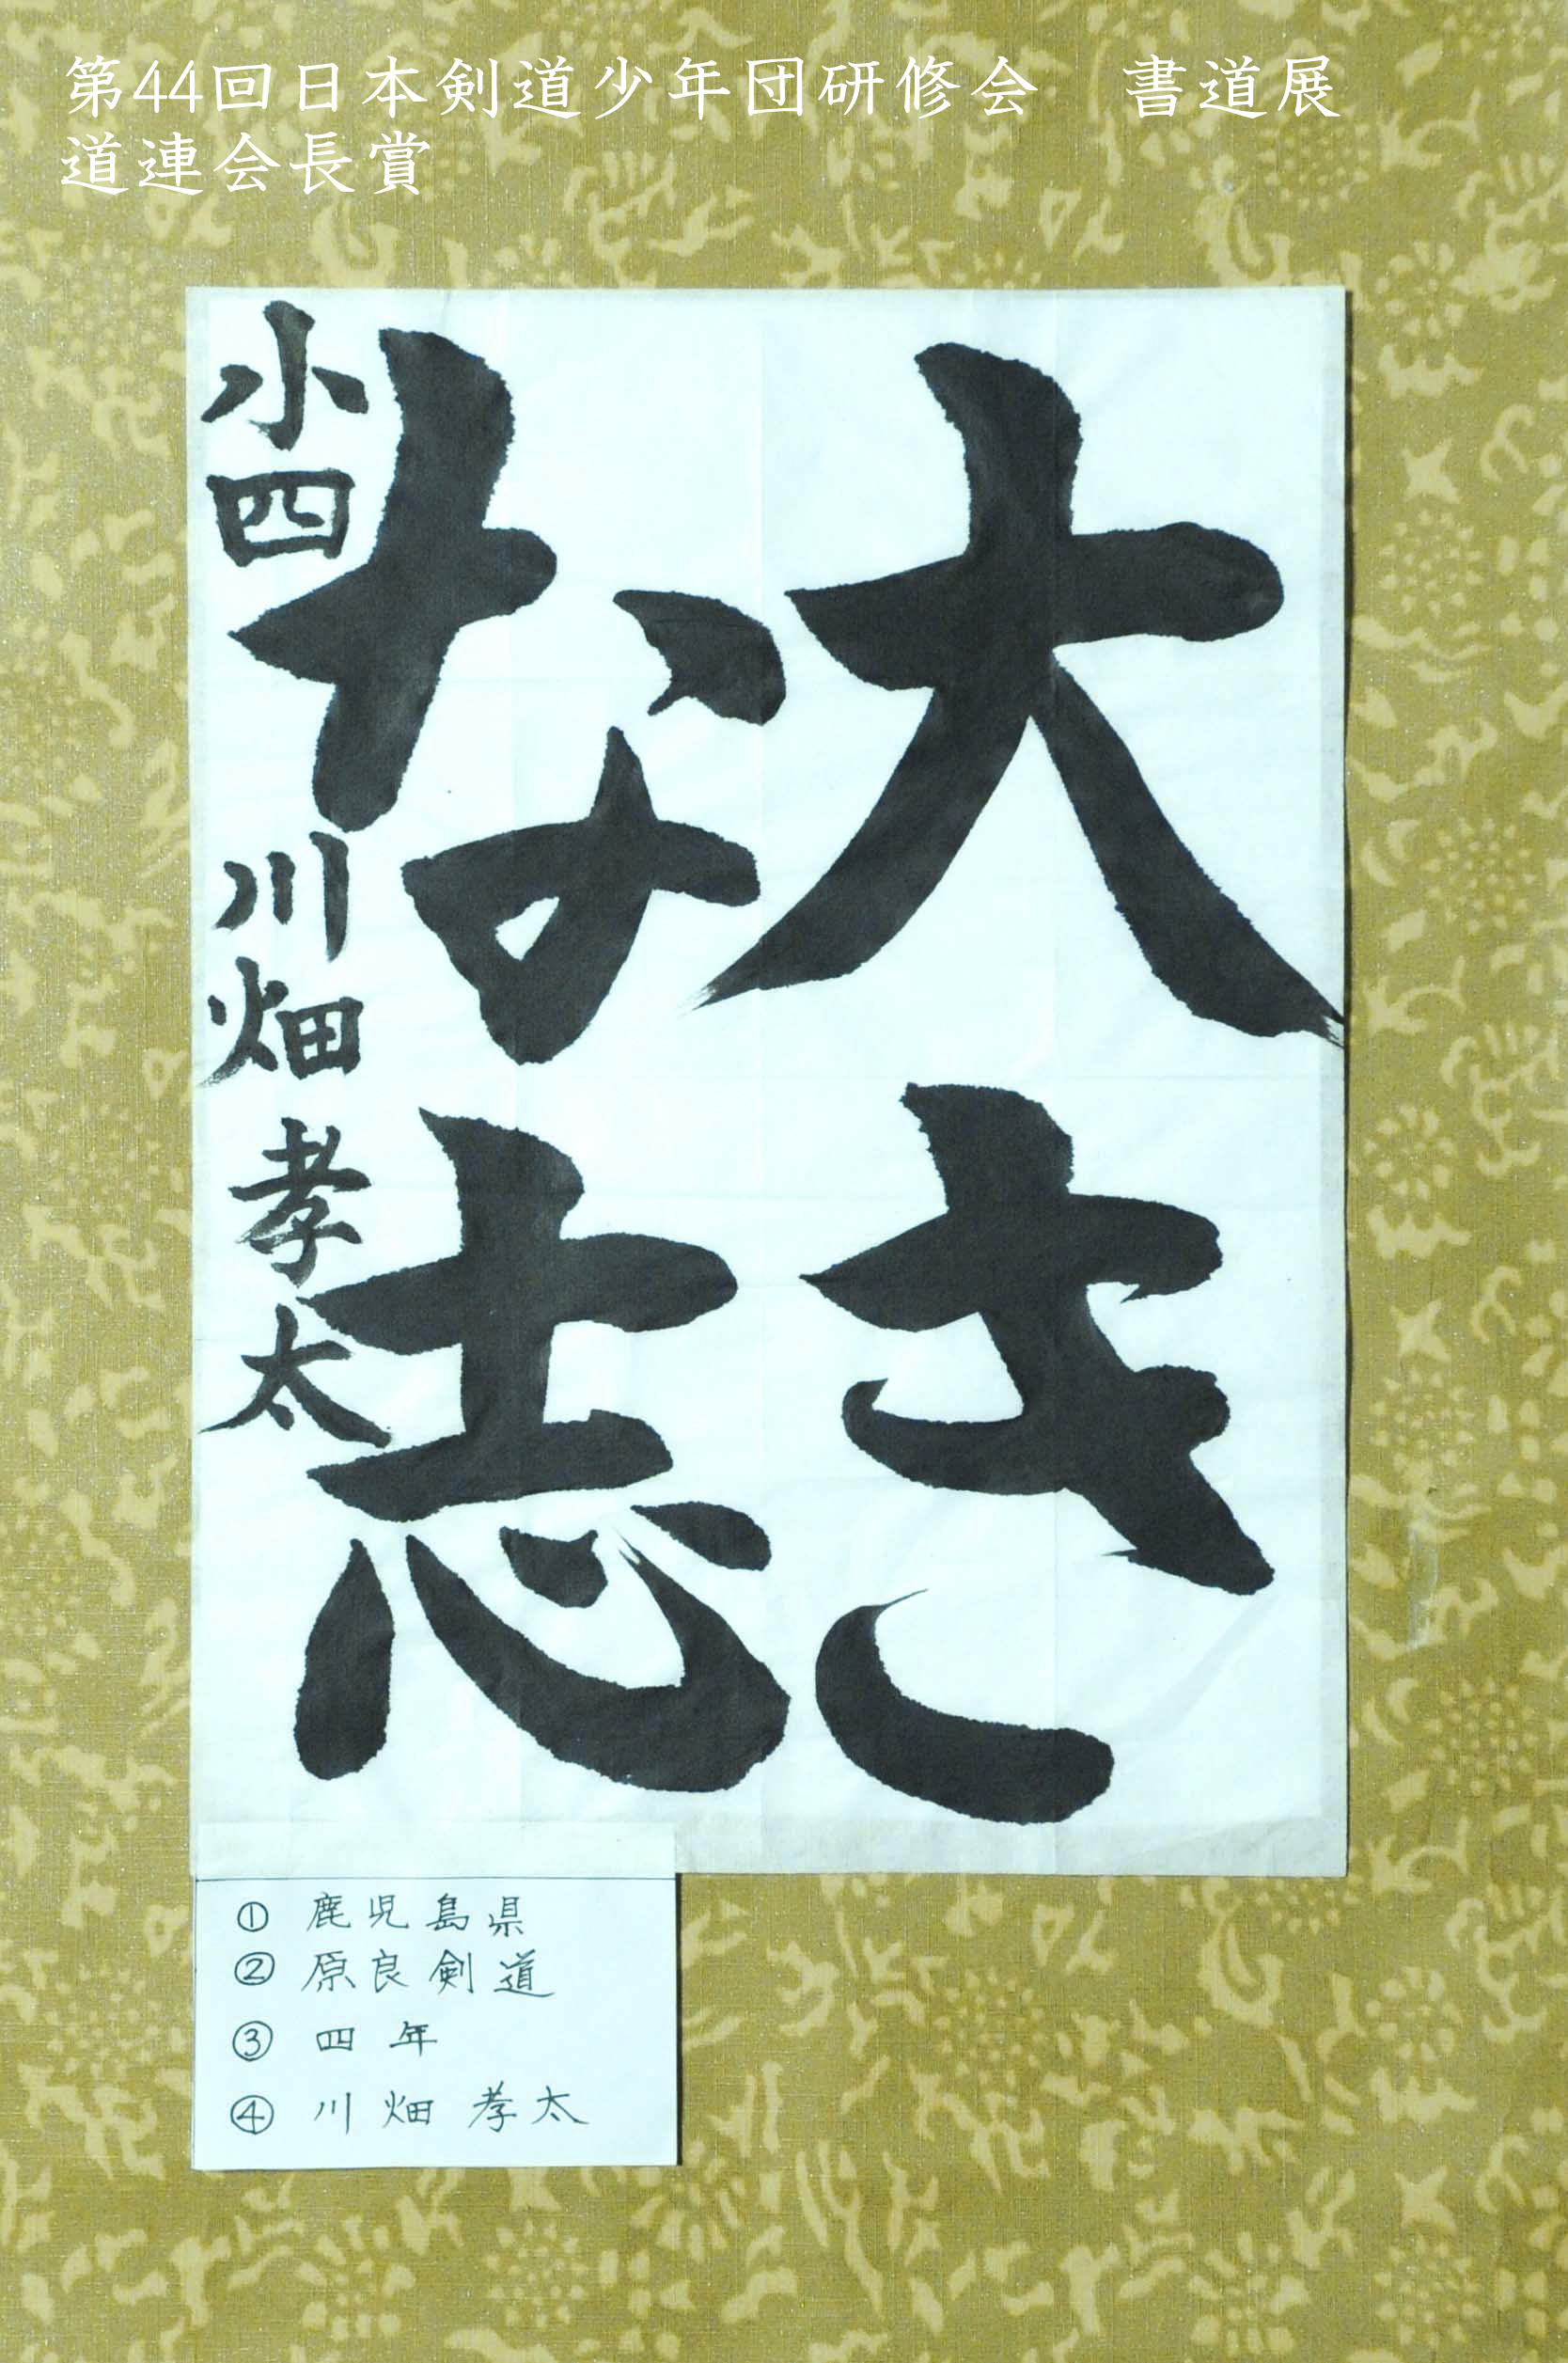 第44回日本剣道少年団研修会　書道展
道連会長賞
大き
な志
小四 川畑孝太
① 鹿児島県
② 原良剣道
③ 四年
④ 川畑 孝太